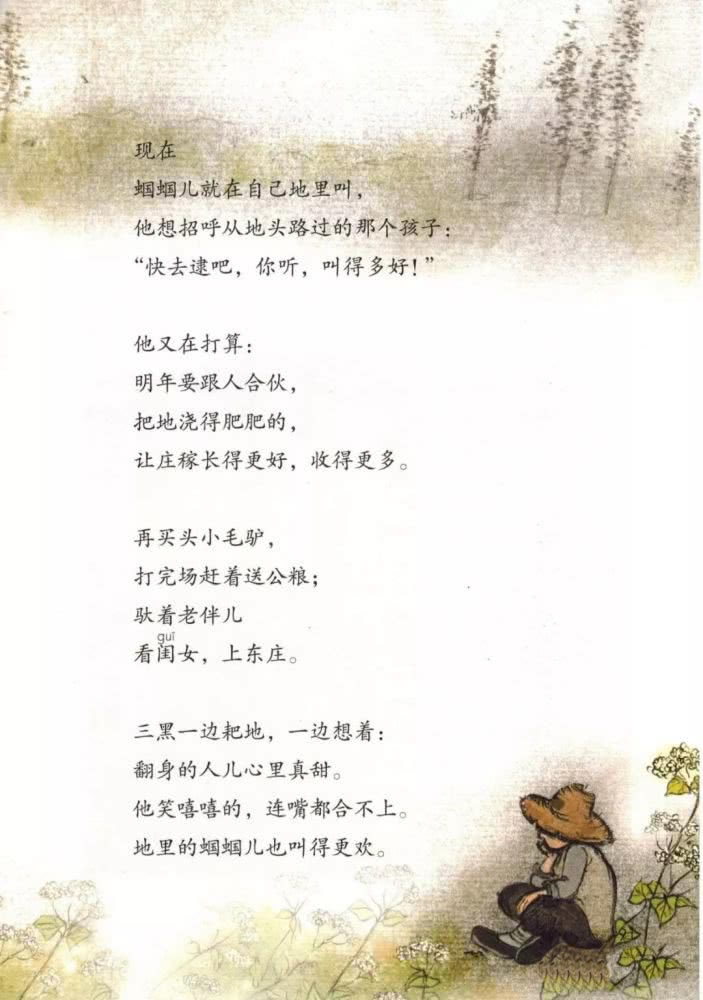 现在
蝈蝈儿就在自己地里叫，
他想招呼从地头路过的那个孩子：
“快去逮吧，你听，叫得多好！”
他又在打算：
明年要跟人合伙，
把地浇得肥肥的，
让庄稼长得更好，收得更多。
再买头小毛驴，
打完场赶着送公粮；
驮着老伴儿
guī
看闺女，上东庄。
三黑一边耙地，一边想着：
翻身的人儿心里真甜。
他笑嘻嘻的，连嘴都合不上。
地里的蝈蝈儿也叫得更欢。